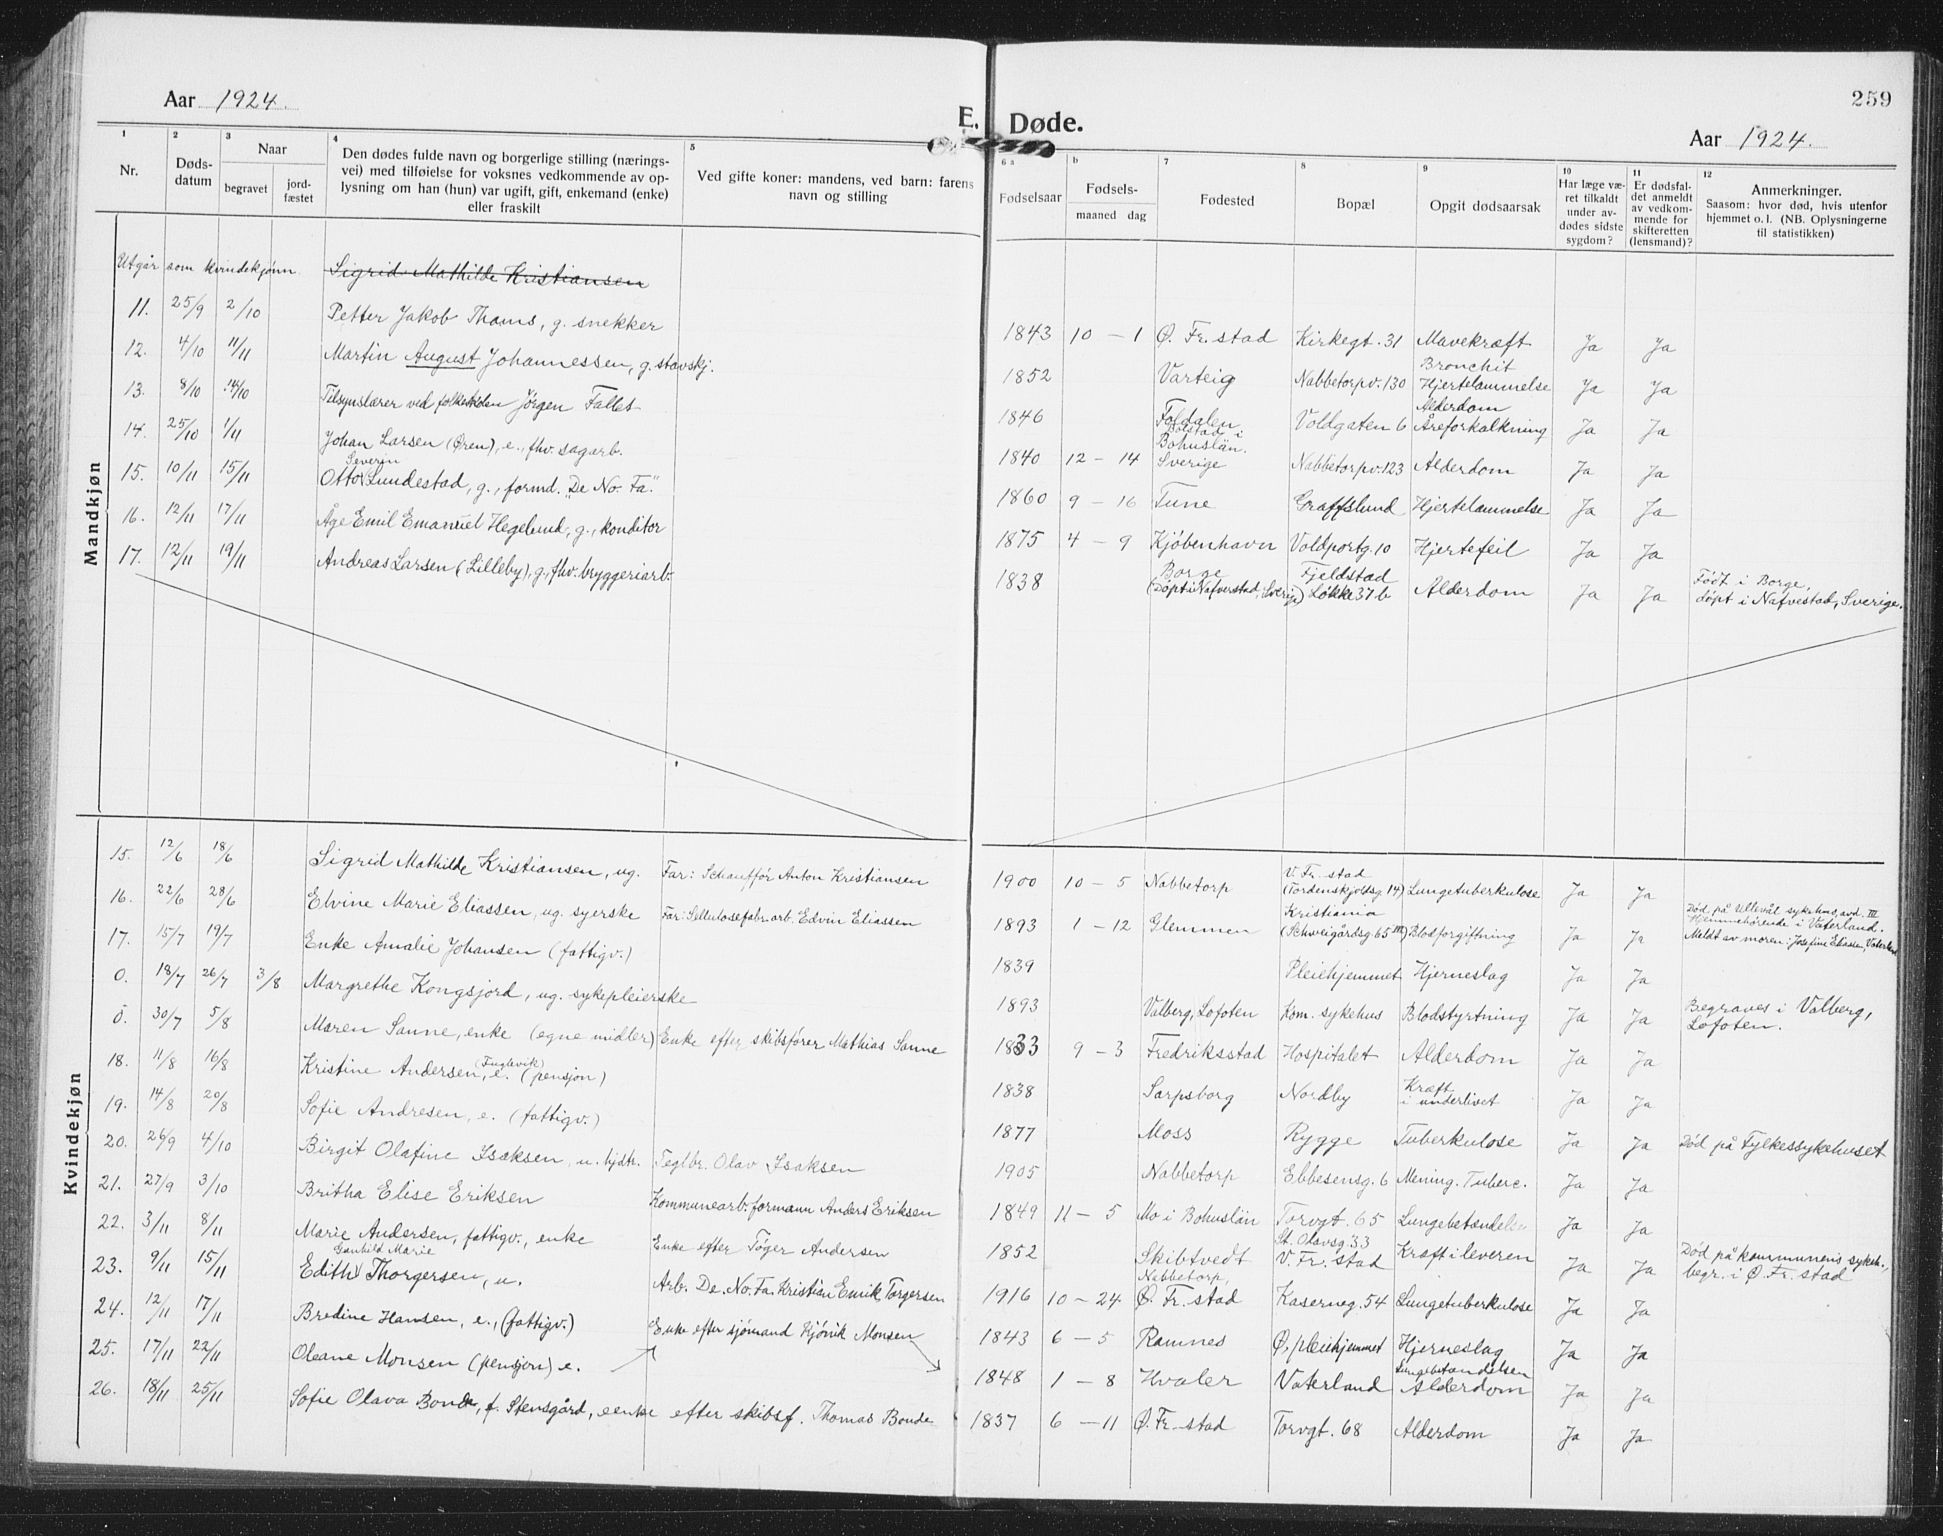 259
Aar 1924.
E. Døde.
Aar 1924.
1 2 3 4 5 6 a b 7 8 9 10 11 12
Nr.
Døds-
datum
Naar
begravet
jord-
fæstet
Den dødes fulde navn og borgerlige stilling (nærings-
vei) med tilføielse for voksnes vedkommende av op-
lysning om han (hun) var ugift, gift, enkemand (enke)
eller fraskilt
Ved gifte koner: mandens, ved barn: farens
navn og stilling
Fødselsaar
Fødsels-
maaned dag
Fødested
Bopæl
Opgit dødsaarsak
Har læge væ-
ret tilkaldt
under av-
dødes sidste
sygdom?
Er dødsfal-
det anmeldt
av vedkom-
mende for
skifteretten
(lensmand)?
Anmerkninger.
Saasom: hvor død, hvis utenfor
hjemmet o. l. (NB. Oplysningerne
til statistikken)
Mandkjøn
Utgår som kvindekjønn. Sigrid Mathilde Kristiansen
11. 25/9 2/10 Petter Jakob Thoms, g. snekker 1843 10 - 1 Ø. Fr. stad Kirkegt. 31 Mavekræft Ja Ja
12. 4/10 11/11 Martin August Johannessen, g. stavskj. 1852 Varteig Nabbetorpv. 130 Bronchit
Hjertelammelse Ja Ja
13. 8/10 14/10 Tilsynslærer ved folkeskolen Jørgen Falles 1846 Foldalen Voldgaten 6 Alderdom
Åreforkalkning Ja Ja
14. 25/10 1/11 Johan Larsen (Øren), e., fhv. sagarb. 1840 12 - 14 Bolstad i
Bohuslän.
Sverige Nabbetorpv. 123 Alderdom Ja Ja
Severin
15. 10/11 15/11 Otto Lundestad, g., formd. "De No. Fa." 1860 9 - 16 Tune Graffslund Hjertelammelse Ja Ja
16. 12/11 17/11 Åge Emil Emanuel Hegelund, g., konditor 1875 4 - 9 Kjöbenhavn Voldportg. 10 Hjertefeil Ja Ja
17. 12/11 19/11 Andreas Larsen (Lilleby), g., fhv. bryggeriarb. 1838 Borge
(Döpt i Nafverstad, Sverige) Fjeldstad
Løkke 37 b Alderdom Ja Ja Født i Borge,
döpt i Nafvestad, Sverige.
Kvindekjøn
15. 12/6 18/6 Sigrid Mathilde Kristiansen, ug. Far: Schauffór Anton Kristiansen 1900 10 - 5 Nabbetorp V. Fr. stad
(Tordenskjoldsg. 14) Lungetuberkulose Ja Ja
16. 22/6 28/6 Elvine Marie Eliassen, ug. syerske Far: Cellulosefabr. arb. Edvin Eliassen 1893 1 - 12 Glemmen Kristiania
(Schweigårdsg. 65 III) Blodforgiftning Ja Ja Död på Ullevål sykehus, avd. III
Hjemmehörende i Vaterland.
Meldt av moren: Josefine Eliassen, Vaterland
17. 15/7 19/7 Enke Amalie Johansen (fattigv.) 1839 Pleiehjemmet Hjerneslag Ja Ja
0. 18/7 26/7 3/8 Margrethe Kongsjord, ug. sykepleierske 1893 Valberg, Lofoten Kom. sykehus Blodstyrtning Ja Ja Begraves i Valberg,
Lofoten.
0. 30/7 5/8 Maren Sanne, enke (egne midler) Enke efter skibsfører Mathias Sanne 1833 9 - 3 Fredriksstad Hospitalet Alderdom Ja Ja
18. 11/8 16/8 Kristine Andersen, (Fuglevik) e. (pensjon) 1838 Sarpsborg Nordby Kræft
i underlivet Ja Ja
19. 14/8 20/8 Sofie Andresen, e. (fattigv.) 1877 Moss Rygge Tuberkulose Ja Ja Död på Fylkessykehuset
20. 26/9 4/10 Birgit Olafine Isaksen, u. hjdtr. Teglbr. Olav Isaksen 1905 Nabbetorp Ebbesensg. 6 Mening. Tuberc. Ja Ja
21. 27/9 3/10 Britha Elise Eriksen Kommunearb. formann Anders Eriksen 1849 11 - 5 Mo i Bohuslän Torvgt. 65 Lungebetændelse Ja Ja
22. 3/11 8/11 Marie Andersen, fattigv., enke Enke efter Töger Andersen 1852 Skibtvedt St. Olavsg. 33
V. Fr. stad Kræft i leveren Ja Ja Död på kommunens sykeh.,
begr. i Ø. Fr. stad
Gunhild Marie
23. 9/11 15/11 Edith Thorgersen, u. Arb. De. No. Fa. Kristian Emik Torgersen 1916 10 - 24 Nabbetorp,
Ø. Fr. stad Kaserneg. 54 Lungetuberkulose Ja Ja
24. 12/11 17/11 Bredine Hansen, e., (fattigv.) Enke efter sjömand Hjörik Monsen 1843 6 - 5 Ramnes Ø, pleiehjemmet Hjerneslag Ja Ja
25. 17/11 22/11 Oleane Monsen (pensjon) e. 1848 1 - 8 Hvaler Vaterland Lungebetændelsen
Alderdom Ja Ja
26. 18/11 25/11 Sofie Olava Bonde, f. Stensgård, e enke efter skibsf. Thomas Bonde 1837 6 - 11 Ø. Fr. stad Torvgt. 68 Alderdom Ja Ja